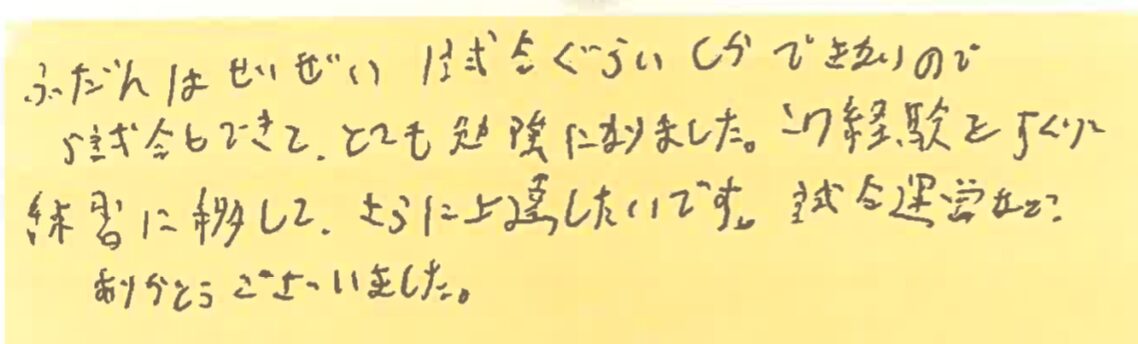 ふだんはせいぜい1試合ぐらいしかできないので
5試合もできて、とても勉強になりました。この経験をすぐに
練習に移して、さらに上達したいです。試合運営など
ありがとうございました。